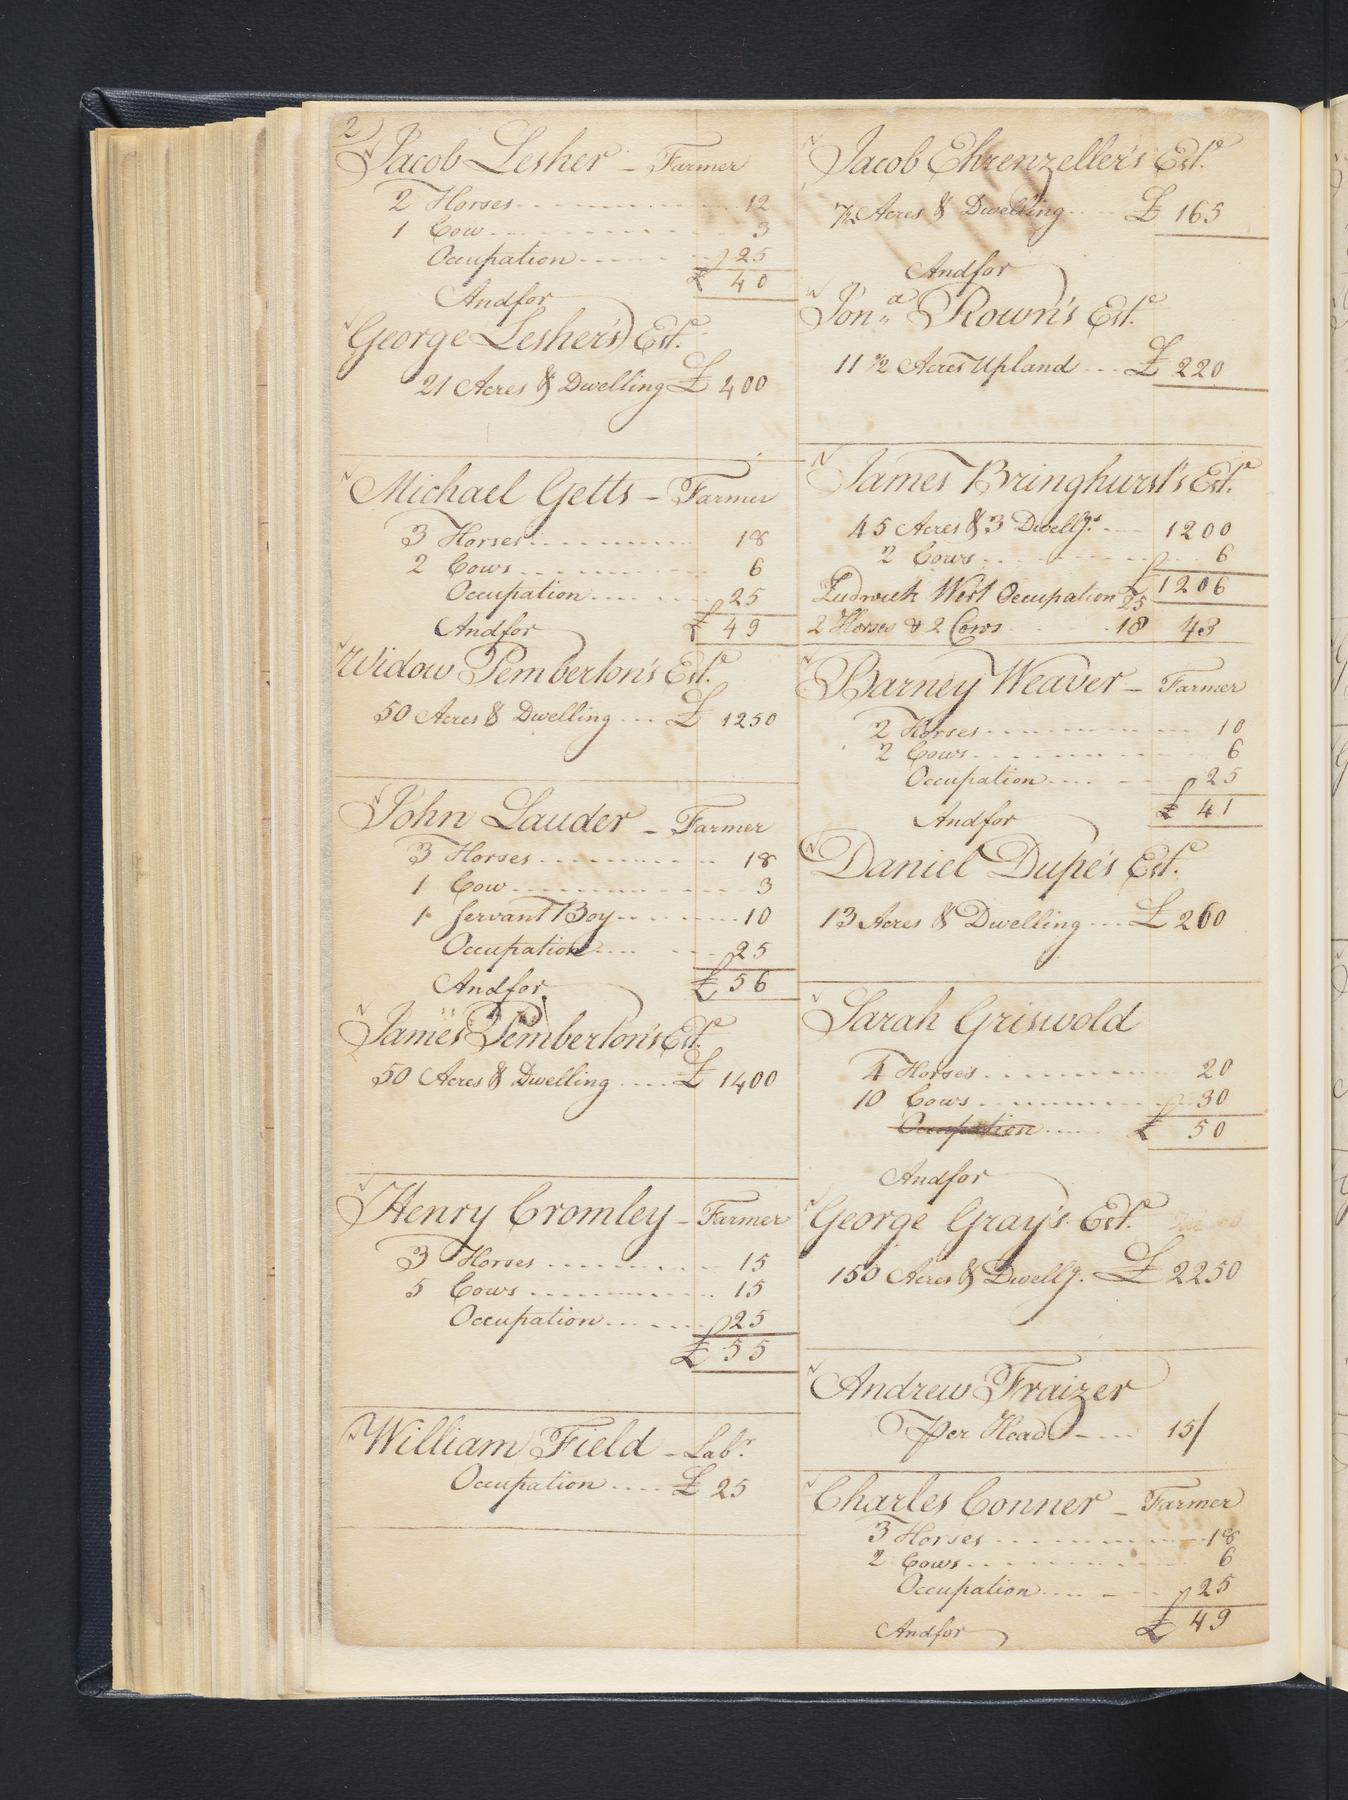 2)
Jacob Lesher - Farmer
2 Horses 12
1 Cow 3
Occupation 25
£ 40
Andfor
George Lesher's Est.e
21 Acres & Dwelling £ 400
Michael Getts - Farmer
3 Horses 18
2 Cows 6
Occupation 25
Andfor £ 49
Widow Pemberton's Est.e
50 Acres & Dwelling £ 1250
John Lauder - Farmer
3 Horses 18
1 Cow 3
1 Servant Boy 10
Occupation 25
Andfor £ 56
James Pemberton's Est.e
50 Acres & Dwelling £ 1400
Henry Cromley - Farmer
3 Horses 15
5 Cows 15
Occupation 25
£ 55
William Field - Lab.r
Occupation £ 25
Jacob Ehrenzeller's Est.e
7½ Acres & Dwelling £ 165
Andfor
Jon.a Rown's Est.e
11½ Acres Upland £ 220
James Bringhurst's Est.e
45 Acres & 3 Dwellg.s 1200
2 Cows 6
£ 1206
Ludwick Occupation 25
2 Horses & 2 Cows 18 43
Barney Weaver - Farmer
2 Horses 10
2 Cows 6
Occupation 25
Andfor £ 41
Daniel Dupe's Est.e
13 Acres & Dwelling £ 260
Sarah Griswold
4 Horses 20
10 Cows 30
Occupation £ 50
Andfor
George Gray's Est.e
150 Acres & Dwellg. £ 2250
Andrew Fraizer
Per Head 15/
Charles Conner - Farmer
3 Horses 18
2 Cows 6
Occupation 25
Andfor £ 49